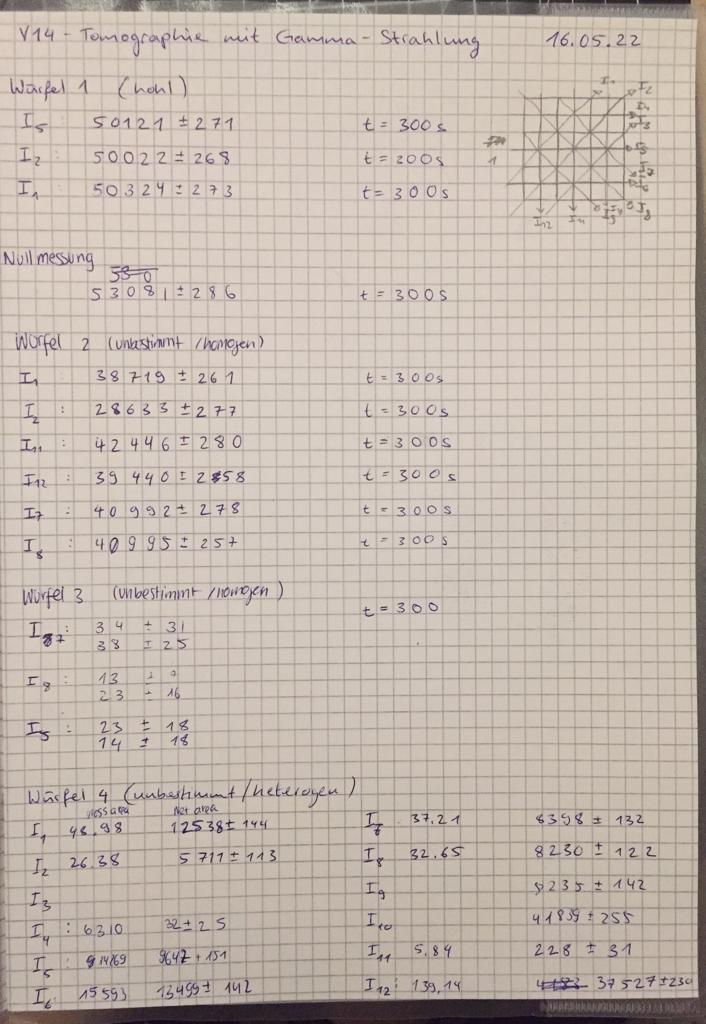 V14 - Tomographie mit Gamma-Strahlung 16.05.22
Würfel 1 (hohl)
I5 50121 ± 271 t = 300s
I2 : 50022 ± 268 t = 200s
I1 50324 ± 273 t = 300s
1
I12 I11 I8
Nullmessung
53081 ± 286 t = 300s
Würfel 2 (unbestimmt /homogen)
I1 : 38719 ± 261 t = 300s
I2 : 28633 ± 277 t = 300s
I11 : 42446 ± 280 t = 300s
I12 : 39440 ± 258 t = 300s
I7 : 40992 ± 278 t = 300s
I8 : 40995 ± 257 t = 300s
Würfel 3 (unbestimmt /homogen)
t = 300
I7 : 34 ± 31
38 ± 25
I8 : 13 ± 9
23 ± 16
I5 : 23 ± 18
14 ± 18
Würfel 4 (unbestimmt/heterogen)
Net area
I1 12538 ± 144 37,21 6398 ± 132
I2 26.38 5711 ± 113 I8 32,65 8230 ± 122
I3 I9 235 ± 142
I4 : 6310 32 ± 25 I10 41839 ± 255
I5 : 9642 ± 151 I11 5,84 228 ± 31
I6 : 15593 13499 ± 142 I12 : 139,14 37527 ± 230